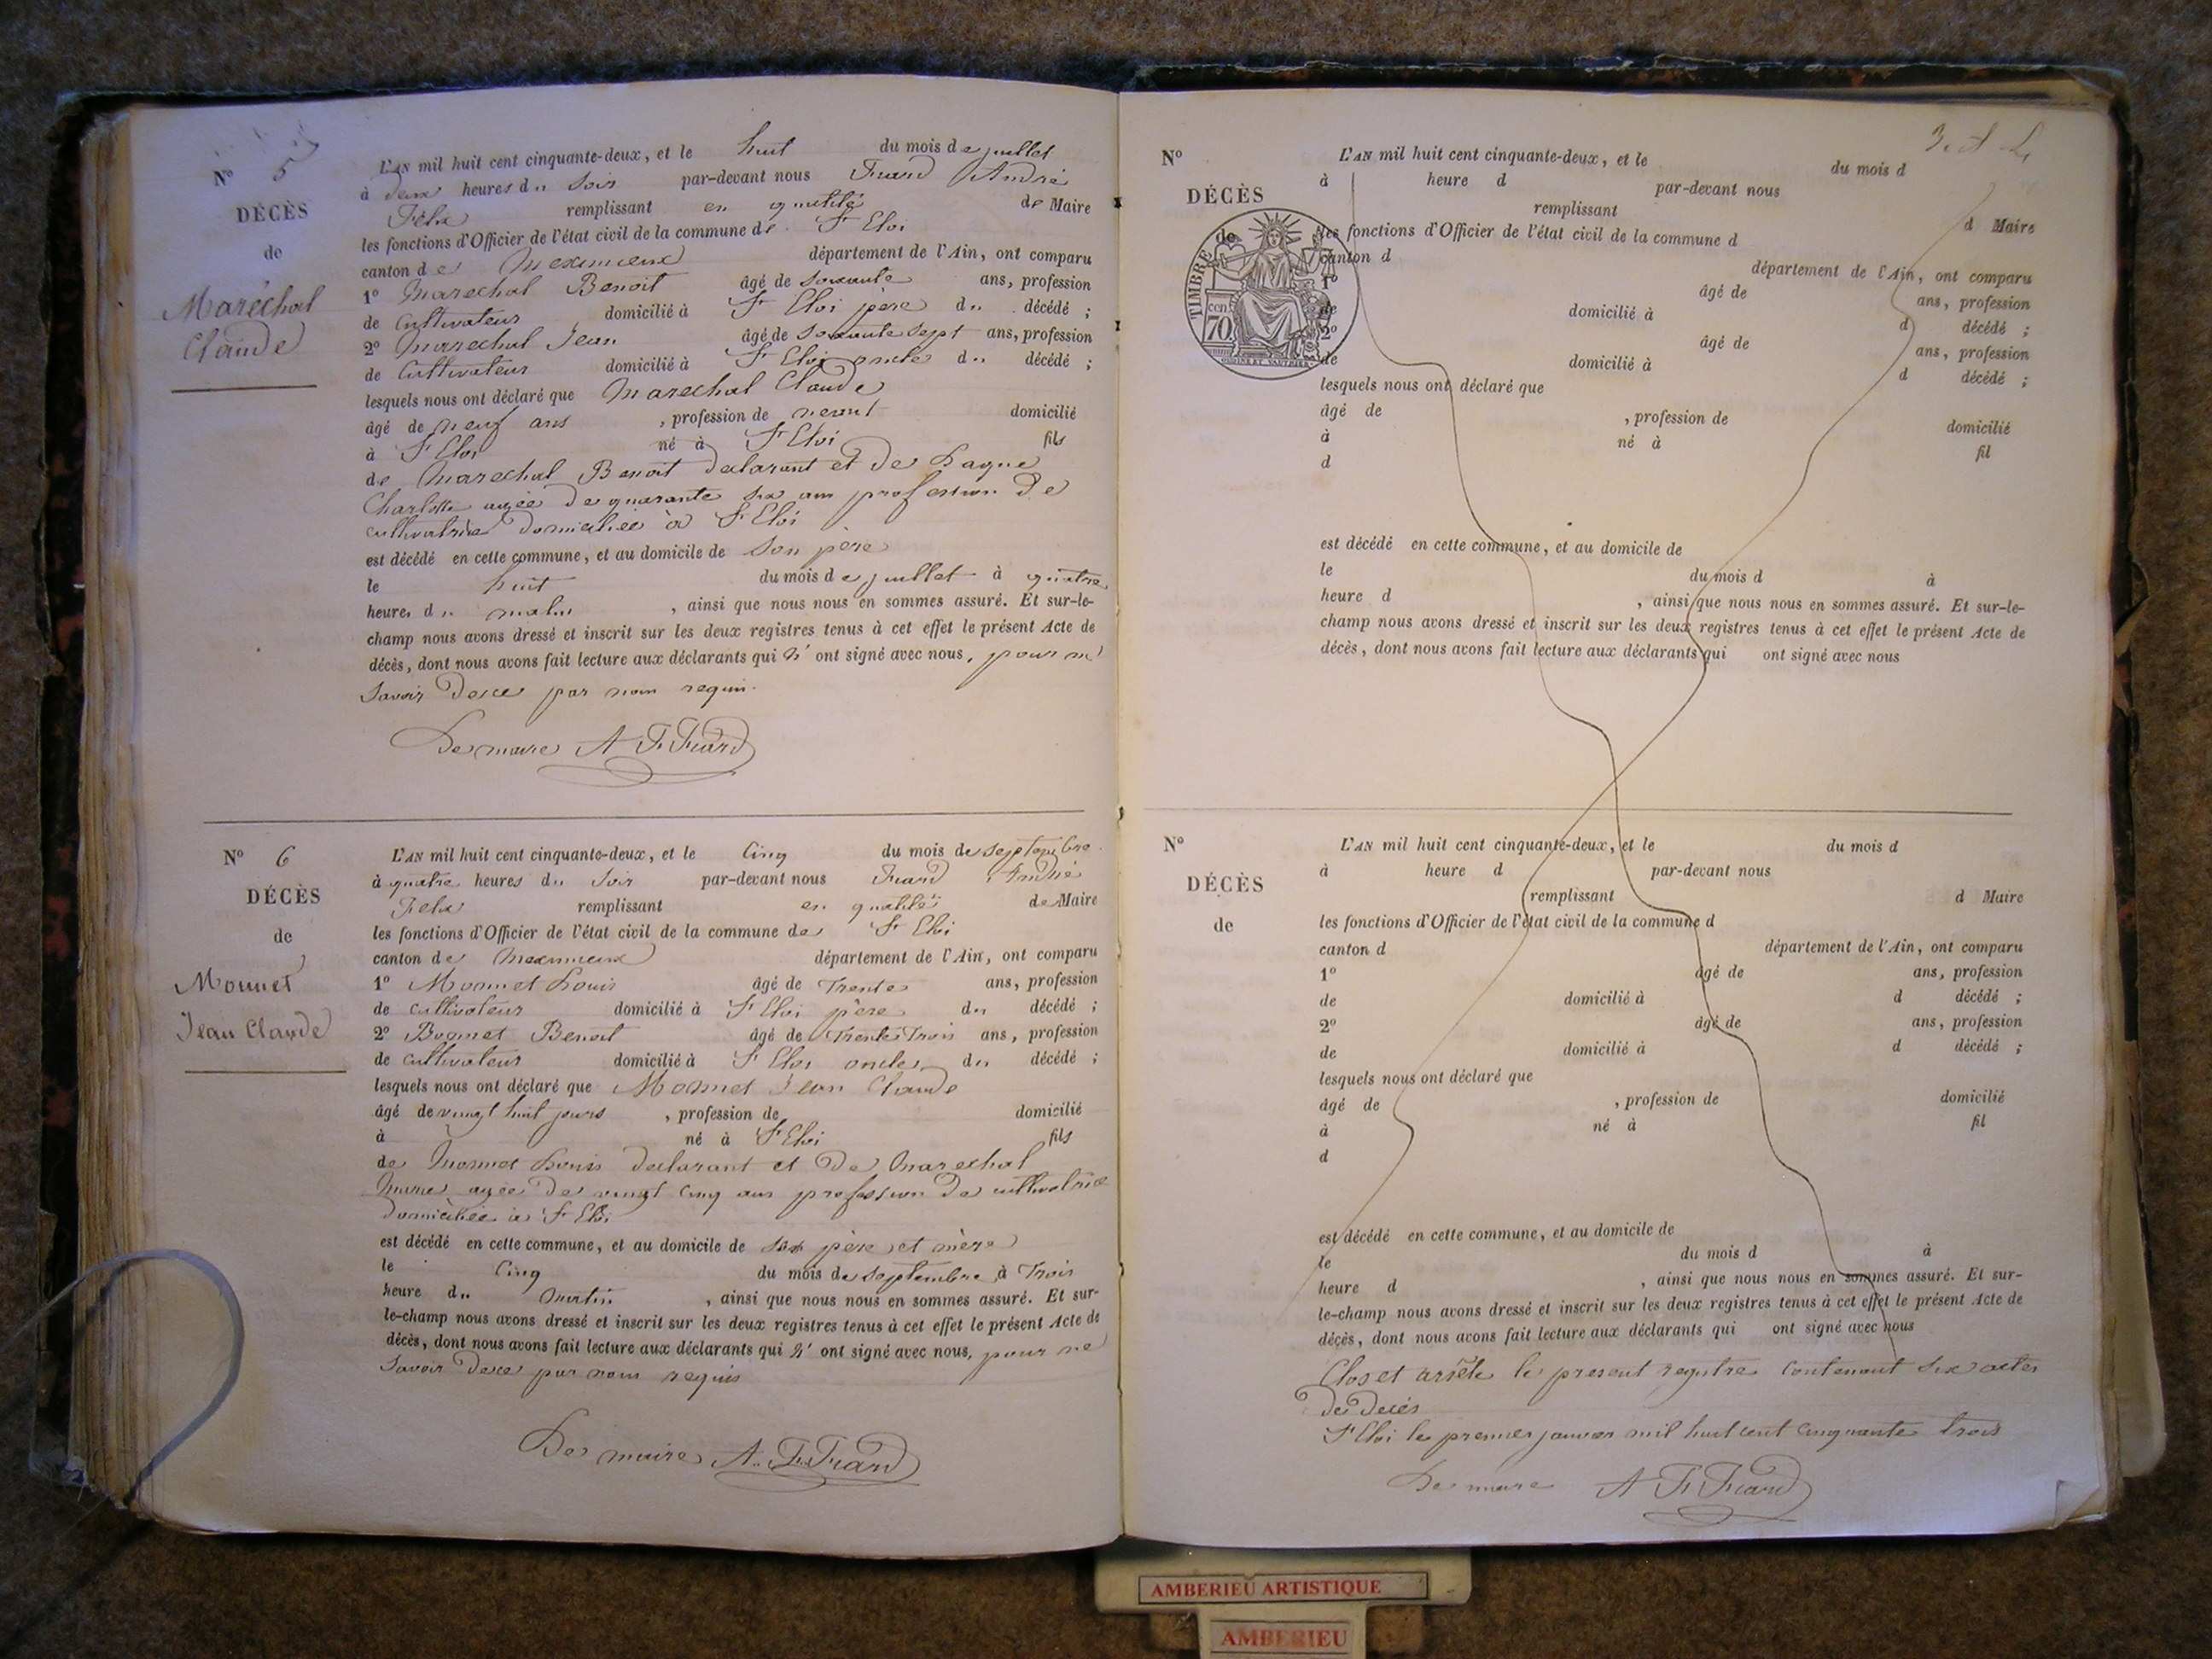 N° 5
DÉCÈS
de
Maréchal
Claude
L'AN mil huit cent cinquante-deux, et le huit du mois de juillet
à deux heures du soir par-devant nous André
Félix remplissant en qualité de Maire
les fonctions d'Officier de l'état civil de la commune de St Eloi
canton de Meximieux département de l'Ain, ont comparu
1° Marechal Benoit âgé de soixante ans, profession
de Cultivateur domicilié à St Eloi père du décédé ;
2° Marechal Jean âgé de soixante sept ans, profession
de Cultivateur domicilié à St Eloi oncle du décédé ;
lesquels nous ont déclaré que Marechal Claude
âgé de neuf ans , profession de domicilié
à St Eloi né à St Eloi fils
de Marechal Benoit declarant et de
Charlotte agée de quarante six ans profession de
cultivatrice domiciliée à St Eloi
est décédé en cette commune, et au domicile de son père
le huit du mois de juillet à quatre
heures du matin , ainsi que nous nous en sommes assuré. Et sur-le-
champ nous avons dressé et inscrit sur les deux registres tenus à cet effet le présent Acte de
décès, dont nous avons fait lecture aux déclarants qui n'ont signé avec nous, pour ne
savoir de ce par nous requis.
Le maire A F
N° 6
DÉCÈS
de
Monnet
Jean Claude
L'AN mil huit cent cinquante-deux, et le cinq du mois de septembre
à quatre heures du soir par-devant nous André
Felix remplissant en qualité de Maire
les fonctions d'Officier de l'état civil de la commune de St Eloi
canton de Meximieux département de l'Ain, ont comparu
1° Monnet Louis âgé de trente ans, profession
de cultivateur domicilié à St Eloi père du décédé ;
2° Benoit âgé de trente trois ans, profession
de cultivateur domicilié à St Eloi oncle du décédé ;
lesquels nous ont déclaré que Monnet Jean Claude
âgé de vingt huit jours , profession de domicilié
à né à St Eloi fils
de Monnet Louis declarant et de Marechal
Marie agée de vingt cinq ans profession de cultivatrice
domiciliée à St Eloi
est décédé en cette commune, et au domicile de ses père et mère
le cinq du mois de septembre à trois
heure du matin , ainsi que nous nous en sommes assuré. Et sur-
le-champ nous avons dressé et inscrit sur les deux registres tenus à cet effet le présent Acte de
décès, dont nous avons fait lecture aux déclarants qui n'ont signé avec nous, pour ne
savoir de ce par nous requis
Le maire A. F.
N°
DÉCÈS
de
TIMBRE
cent.
70.
L'AN mil huit cent cinquante-deux, et le du mois d
à heure d par-devant nous
remplissant d Maire
les fonctions d'Officier de l'état civil de la commune d
canton d département de l'Ain, ont comparu
1° âgé de ans, profession
de domicilié à d décédé ;
2° âgé de ans, profession
de domicilié à d décédé ;
lesquels nous ont déclaré que
âgé de , profession de domicilié
à né à fil
d
est décédé en cette commune, et au domicile de
le du mois d à
heure d , ainsi que nous nous en sommes assuré. Et sur-le-
champ nous avons dressé et inscrit sur les deux registres tenus à cet effet le présent Acte de
décès, dont nous avons fait lecture aux déclarants qui ont signé avec nous
N°
DÉCÈS
de
L'AN mil huit cent cinquante-deux, et le du mois d
à heure d par-devant nous
remplissant d Maire
les fonctions d'Officier de l'état civil de la commune d
canton d département de l'Ain, ont comparu
1° âgé de ans, profession
de domicilié à d décédé ;
2° âgé de ans, profession
de domicilié à d décédé ;
lesquels nous ont déclaré que
âgé de , profession de domicilié
à né à fil
d
est décédé en cette commune, et au domicile de
le du mois d à
heure d , ainsi que nous nous en sommes assuré. Et sur-
le-champ nous avons dressé et inscrit sur les deux registres tenus à cet effet le présent Acte de
décès, dont nous avons fait lecture aux déclarants qui ont signé avec nous
Clos et arrêté le present registre contenant six actes
de décès
St Eloi le premier janvier mil huit cent cinquante trois
Le maire A F
AMBERIEU ARTISTIQUE
AMBERIEU